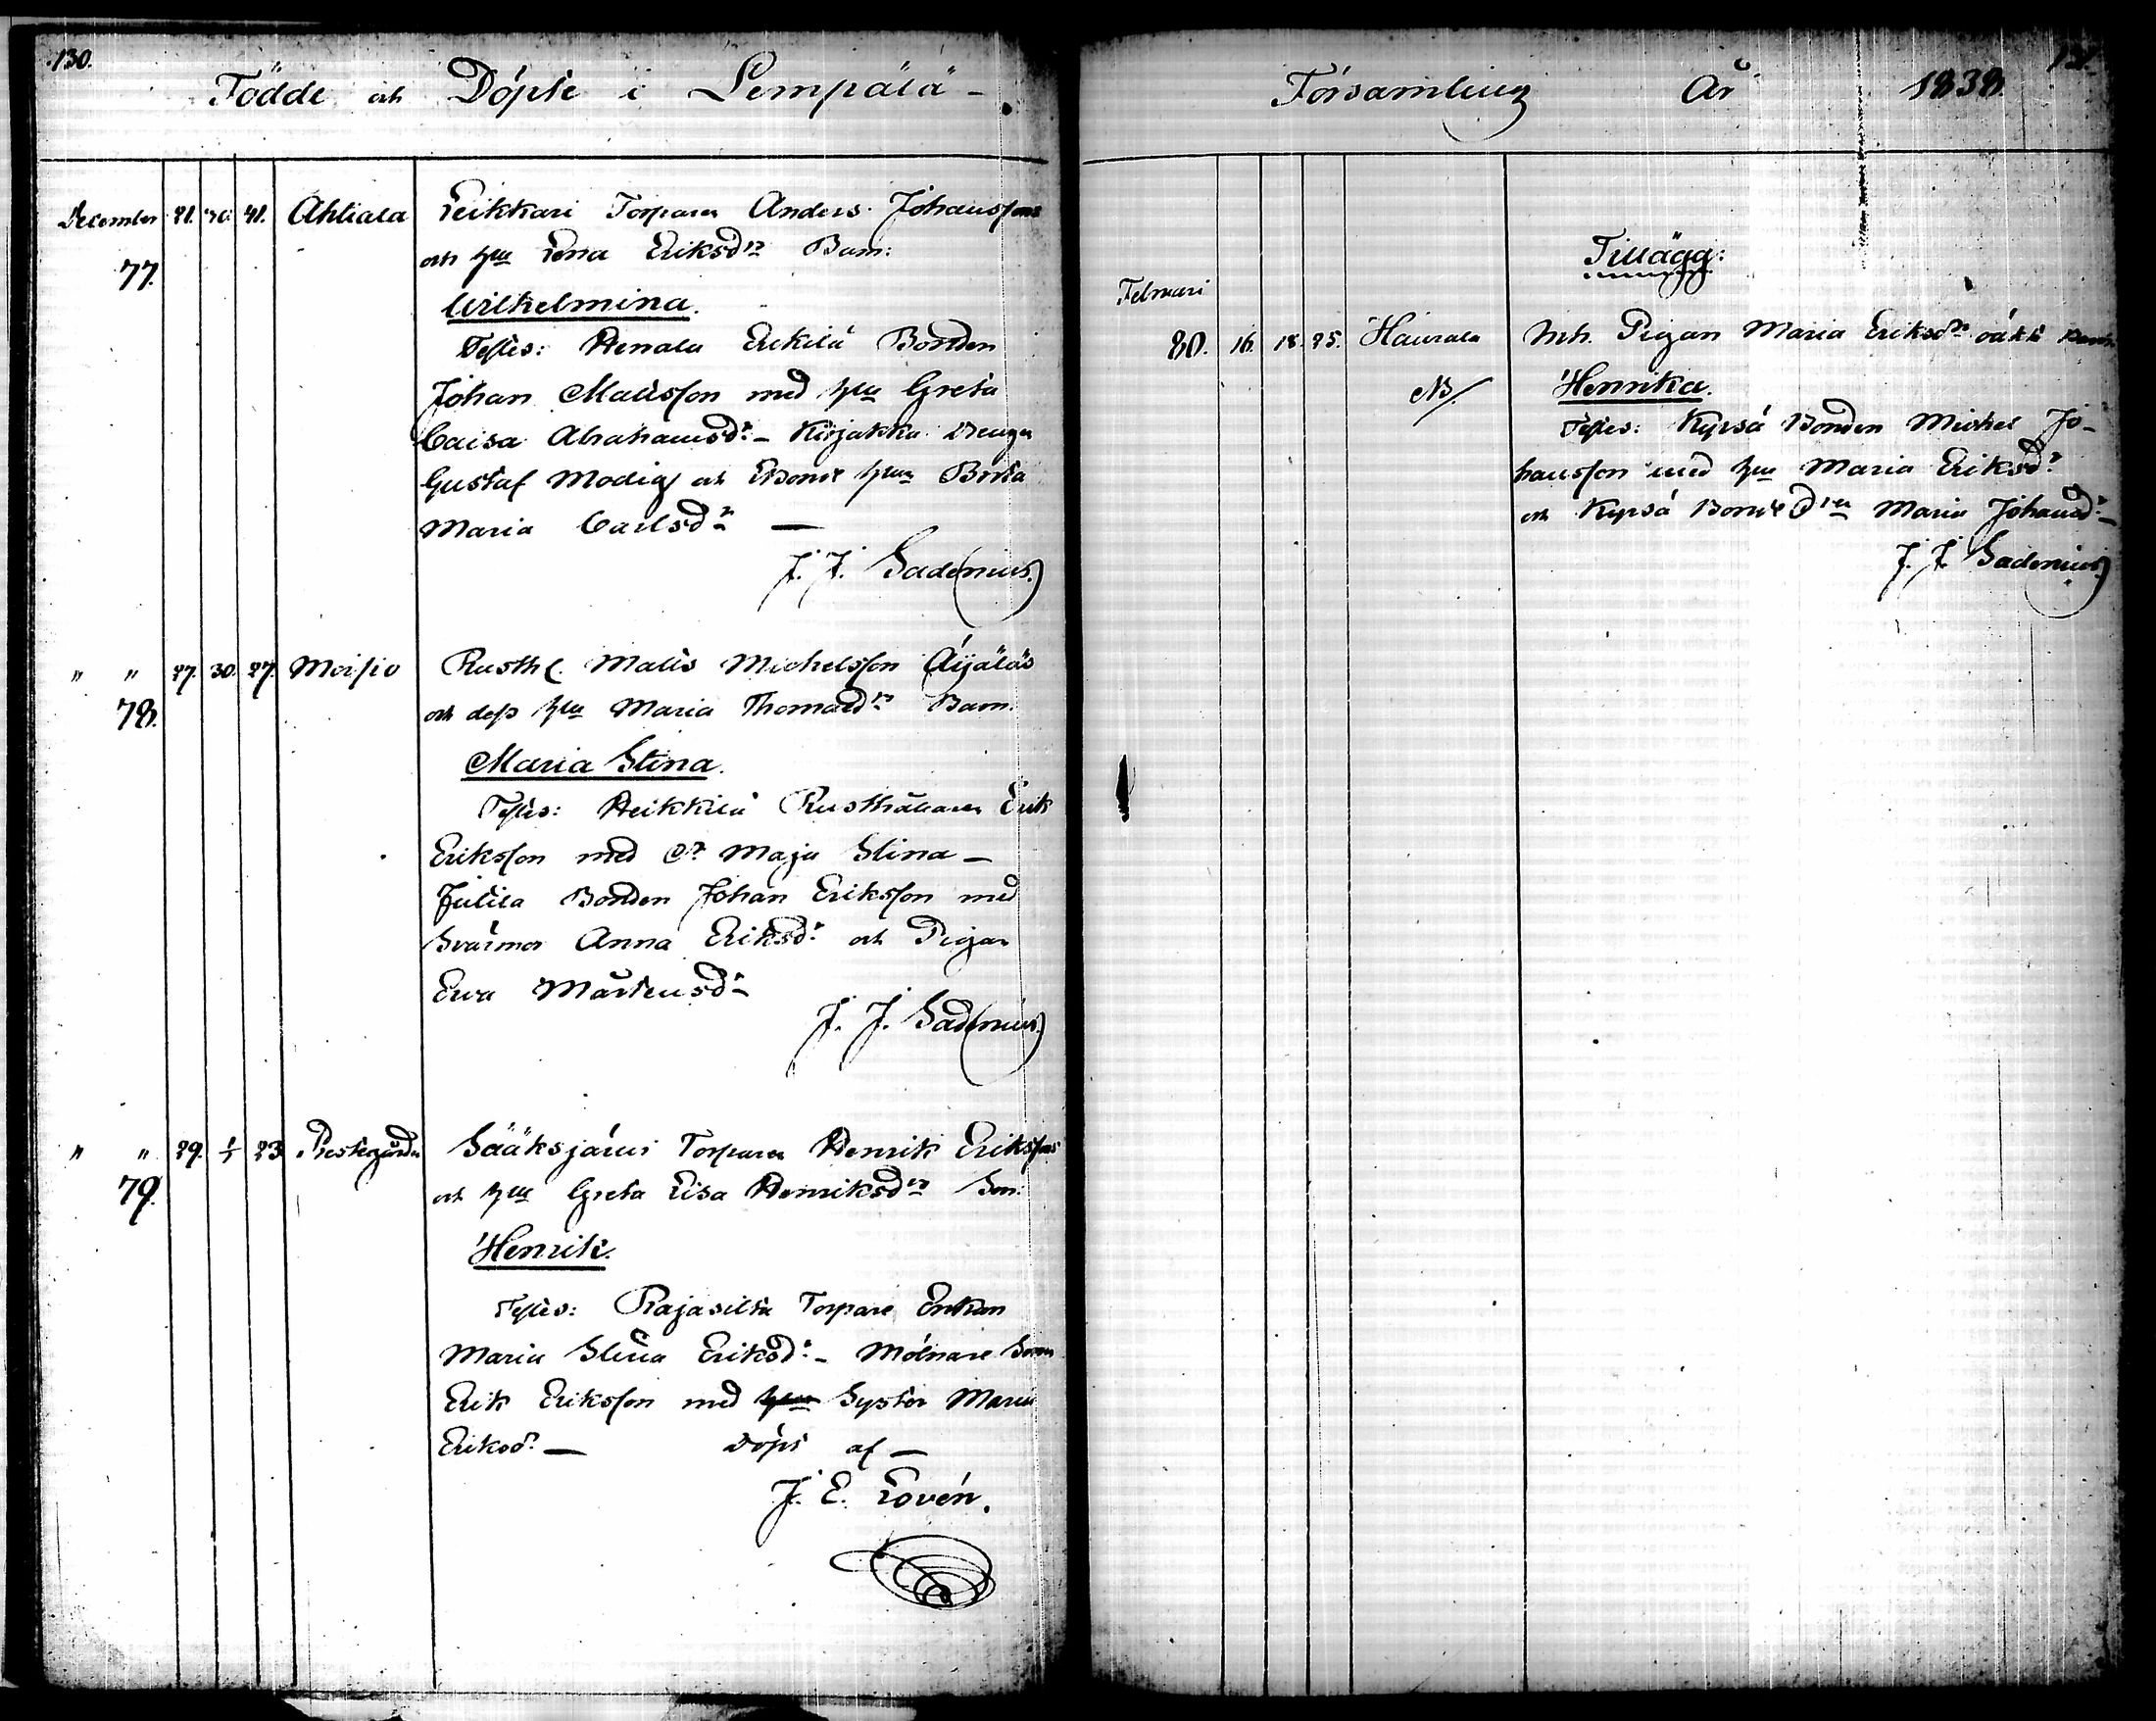 130.
Födde och Döpte i Lempälä -
December 21. 30. 41. Ahtiala Leikkari Torparen Anders Johanssons
77. och hu Lena Eriksdrs Barn:
Wilhelmina.
Testes: Henala Erkilä Bonden
Johan Matsson med hu Greta
Caisa Abrahamsdr - Kirjakka Drengen
Gustaf Modig och hu Brita
Maria Carlsdr —
J. J. Sadenius.
" " 27. 30. 27. Moisio Rusth. Matts Michelsson Äijäläs
78. och dess hu Maria Thomasdrs Barn.
Maria Stina.
Testes: Heikkilä Rusthållaren Erik
Eriksson med Maja Stina -
Jutila Bonden Johan Eriksson med
Svärmor Anna Eriksdr och Pigan
Ewa Mårtensdr
J. J. Sadenius
" " 29. 1/1 23 Prestegården Sääksjärvi Torparen Henrik Erikssons
79. och hu Greta Lisa Henriksdrs Son:
Henrik.
Testes: Rajasilta Torpare Enkan
Maria Stina Eriksdr - Mölnare Sonen
Erik Eriksson med Syster Maria
Eriksdr — Döpt af —
J. E. Lovén.
131.
Församling År 1838
Tillägg:
Februari
80. 16. 18. 25. Haurala Mh. Pigan Maria Eriksdrs oäkta Barn
NB/ Henrika.
Testes: Kyrsä Bonden Michel Jo-
hansson med hu Maria Eriksdr
och Kyrsä Maria Johansdr -
J. J. Sadenius